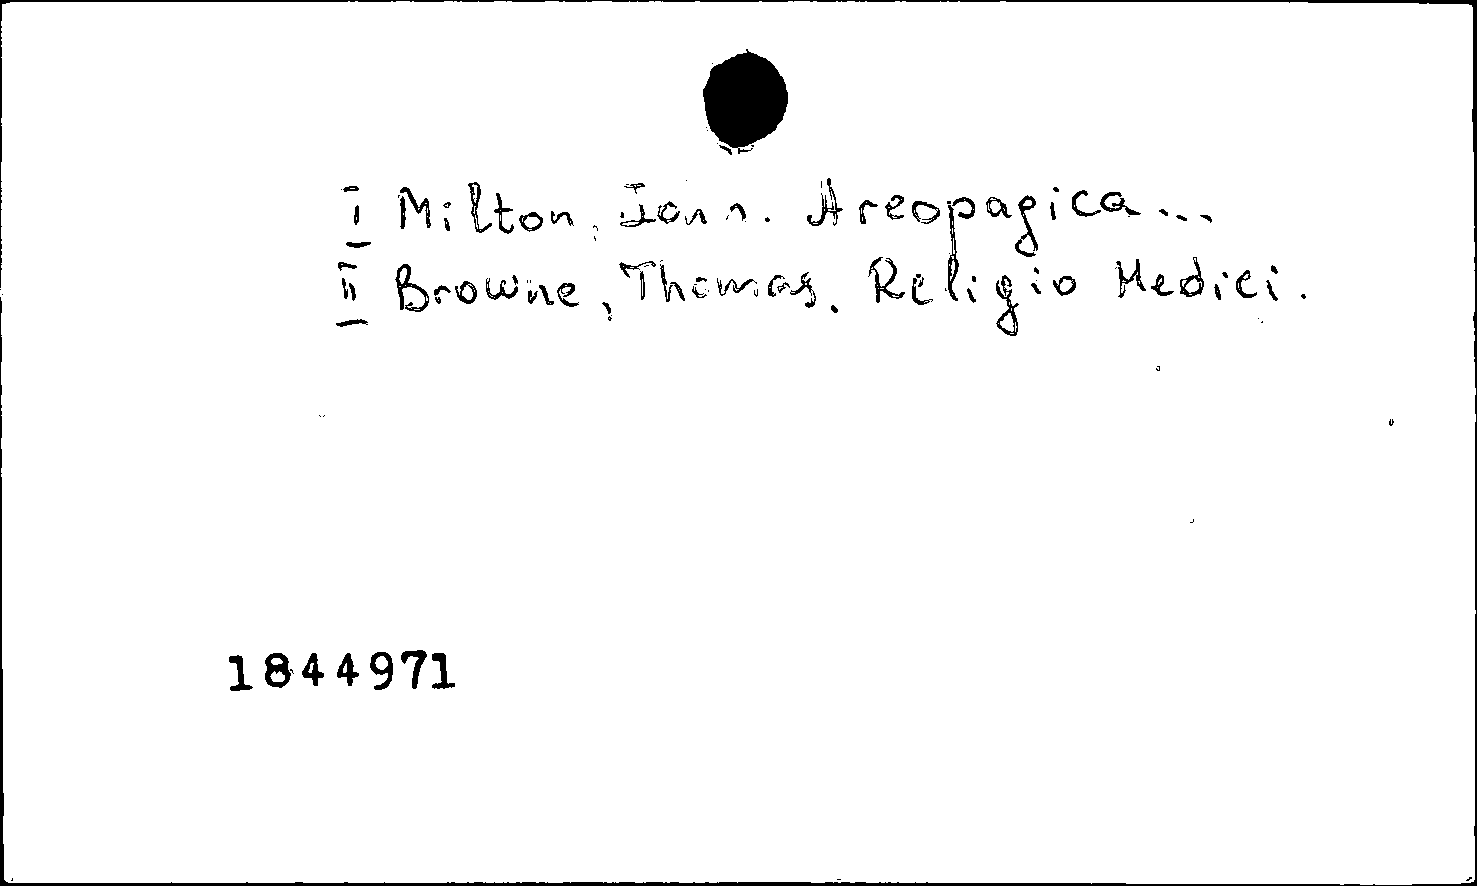 I Milton, John. Areopagica...
II Browne, Thomas. Religio Medici.
1844971